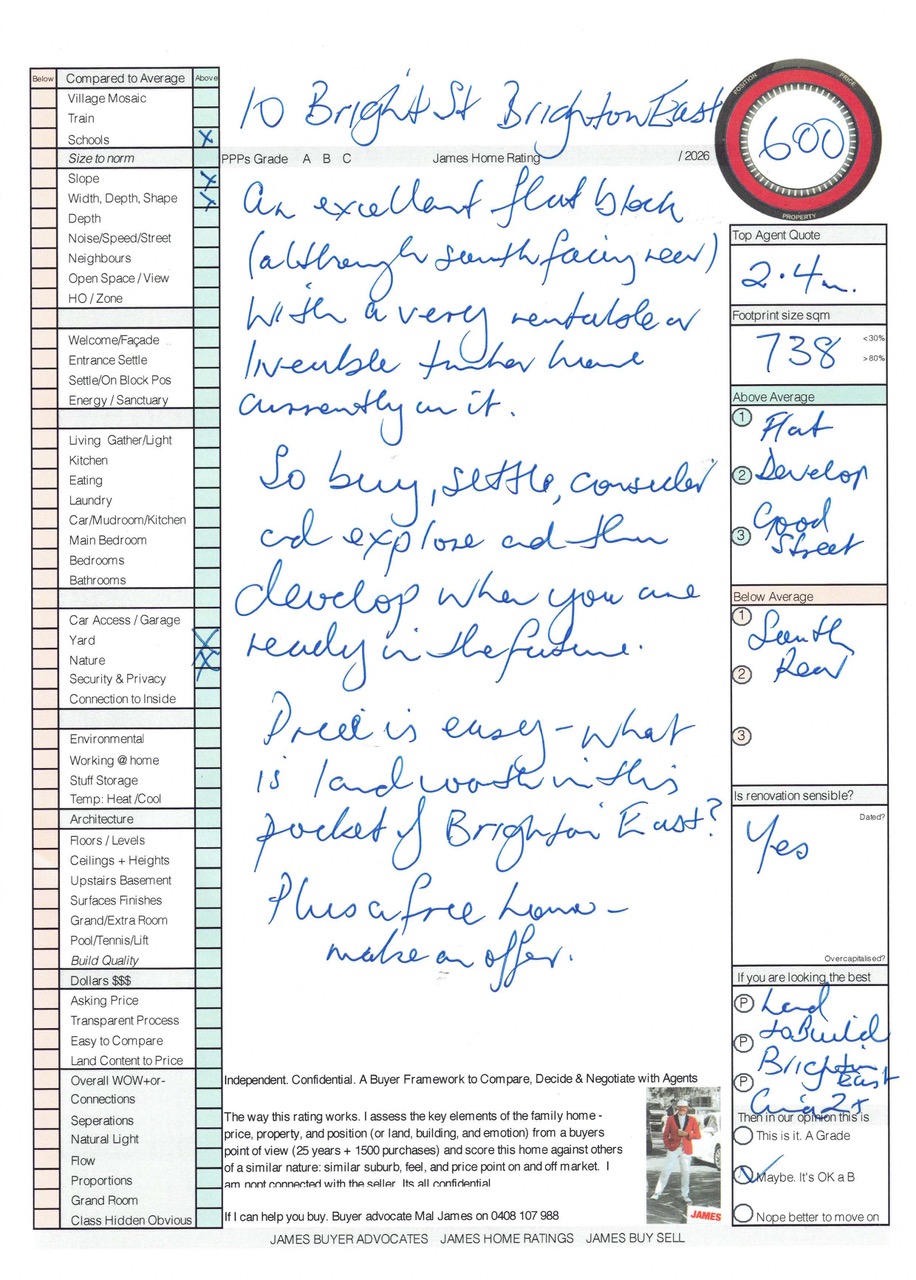 Below Compared to Average Above
Village Mosaic
Train
Schools X
Size to norm
Slope X
Width, Depth, Shape X
Depth
Noise/Speed/Street
Neighbours
Open Space / View
HO / Zone
Welcome/Façade
Entrance Settle
Settle/On Block Pos
Energy / Sanctuary
Living Gather/Light
Kitchen
Eating
Laundry
Car/Mudroom/Kitchen
Main Bedroom
Bedrooms
Bathrooms
Car Access / Garage
Yard X
Nature X
Security & Privacy
Connection to Inside
Environmental
Working @ home
Stuff Storage
Temp: Heat /Cool
Architecture
Floors / Levels
Ceilings + Heights
Upstairs Basement
Surfaces Finishes
Grand/Extra Room
Pool/Tennis/Lift
Build Quality
Dollars $$$
Asking Price
Transparent Process
Easy to Compare
Land Content to Price
Overall WOW+or-
Connections
Seperations
Natural Light
Flow
Proportions
Grand Room
Class Hidden Obvious
10 Bright St Brighton East
PPPs Grade A B C James Home Rating / 2026
An excellent flat block
(although south facing rear)
with a very rentable or
liveable timber home
currently on it.
So buy, settle, consider
and explore and then
develop when you are
ready in the future.
Price is easy - what
is land worth in this
pocket of Brighton East?
Plus a free home -
make an offer.
Independent. Confidential. A Buyer Framework to Compare, Decide & Negotiate with Agents
The way this rating works. I assess the key elements of the family home -
price, property, and position (or land, building, and emotion) from a buyers
point of view (25 years + 1500 purchases) and score this home against others
of a similar nature: similar suburb, feel, and price point on and off market. I
am nont connected with the seller. Its all confidential
If I can help you buy. Buyer advocate Mal James on 0408 107 988
JAMES
POSITION PRICE
600
PROPERTY
Top Agent Quote
2.4m.
Footprint size sqm
738 <30%
>80%
Above Average
1 Flat
2 Develop
3 Good
Street
Below Average
1 South
2 Rear
3
Is renovation sensible?
Dated?
Yes
Overcapitalised?
If you are looking the best
P Land
P to Build
P Brighton
East
Circa 2+
Then in our opinion this is
This is it. A Grade
Maybe. It's OK a B
Nope better to move on
JAMES BUYER ADVOCATES JAMES HOME RATINGS JAMES BUY SELL